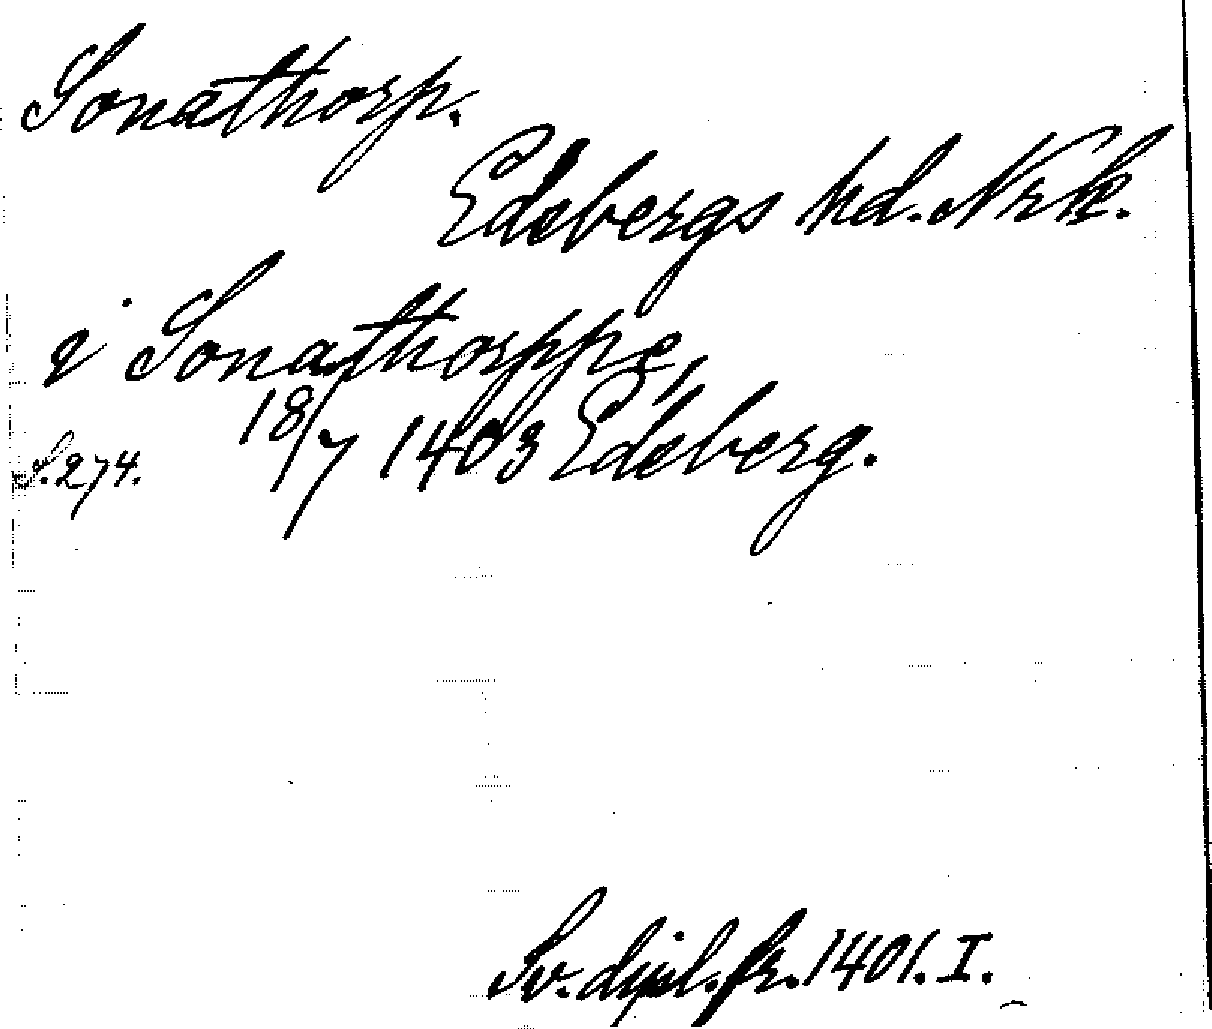 Sonathorp.
Edsbergs hd. Nrk.
i Sonathorppe,
18/7 1403 Edsberg.
S. 274.
Sv. dipl. fr. 1401. I.